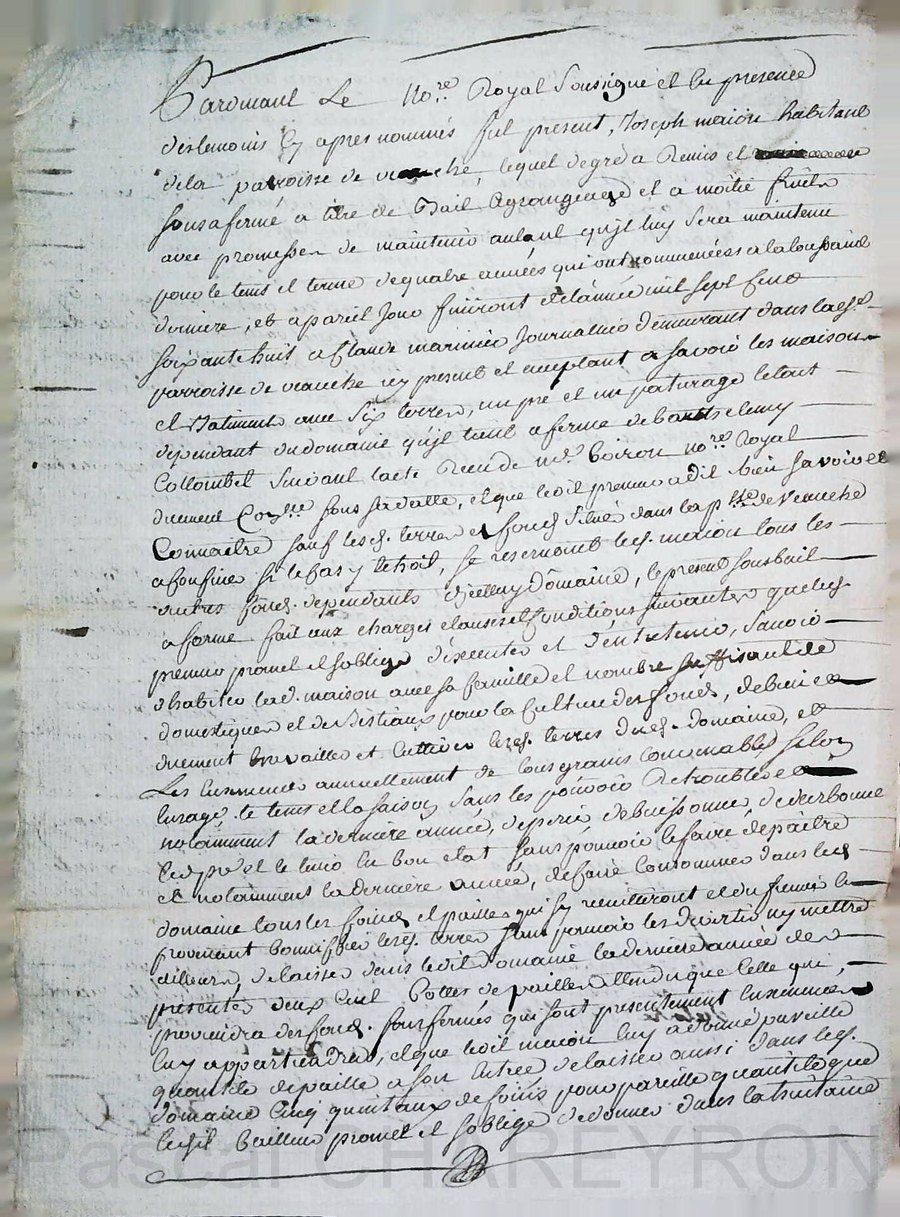 Pardevant Le No.re Royal Soussigné et En presence
des temoins Cy apres nommés fut present, Joseph marion habitant
de la parroisse de veauche, lequel de gré a Remis et
sousafermé a titre de Bail agrangeage et a moitié fruits
avec promesse de maintenir autant qu'il luy sera maintenu
pour le tems et terme de quatre années qui ont commencées a la toussaint
derniere, et a pareil jour finiront de l'année mil sept Cent
soixante huit a Claude marinier Journallier demeurant dans lad.
parroisse de veauche icy present et acceptant a savoir les maison
et Batiments avec six terres, un pré et un paturage le tout
dependant du domaine qu'il tient a ferme de barthelemy
Collombet suivant l'acte Receu de m.e Boiron no.re Royal
duement Con.llé sous sa datte, et que ledit preneur a dit bien savoir et
Connaitre sauf lesd. terres et fonds situés dans la p.sse de veauche
a Confiner si le Cas y Echoit, se reservant led. marion tous les
autres fonds dependants d'icelluy domaine, le present sousbail
a ferme fait aux charges clauses et Conditions suivantes que led.
preneur promet et s'oblige d'executer et d'entretenir, savoir
d'habiter lad. maison avec sa famille et nombre suffisant de
domestiques et de Bestiaux pour la Culture des fonds, de bien et
duement travailler et Cultiver lesd. terres dud. domaine, et
Les ensemencer annuellement de tous grains Convenables selon
l'usage le tems et la saison sans les pouvoir detroubler et
notamment la derniere année, d'epier de buissonner, de derbonner
led. pré et le tenir En bon etat sans pouvoir le faire depaitre
et notamment la derniere année, de faire Consommer dans led.
domaine tous les foins et pailles qui s'y recuilleront et du fumier en
provenant bonniffier lesd. terres sans pouvoir les divertir ny mettre
ailleurs, de laisser dans ledit domaine la derniere année des
presentes deux Cent Bottes de pailles attendu que Celle qui
proviendra des fonds sousfermés qui sont presentement ensemencés
luy appartiendra, et que ledit marion luy a donné pareille
quantité de paille a son Entrée de laisser aussi dans led.
domaine Cinq quintaux de foins pour pareille quantité que
ledit bailleur promet et s'oblige de donner dans la huitaine
Pascal CHAREYRON